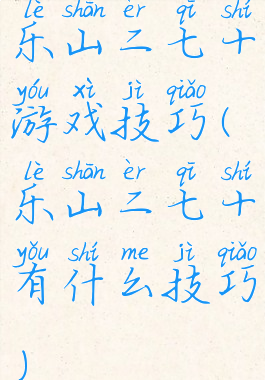 lè shān èr qī shí
乐山二七十
yóu xì jì qiǎo
游戏技巧(
lè shān èr qī shí
乐山二七十
yǒu shí me jì qiǎo
有什么技巧
)